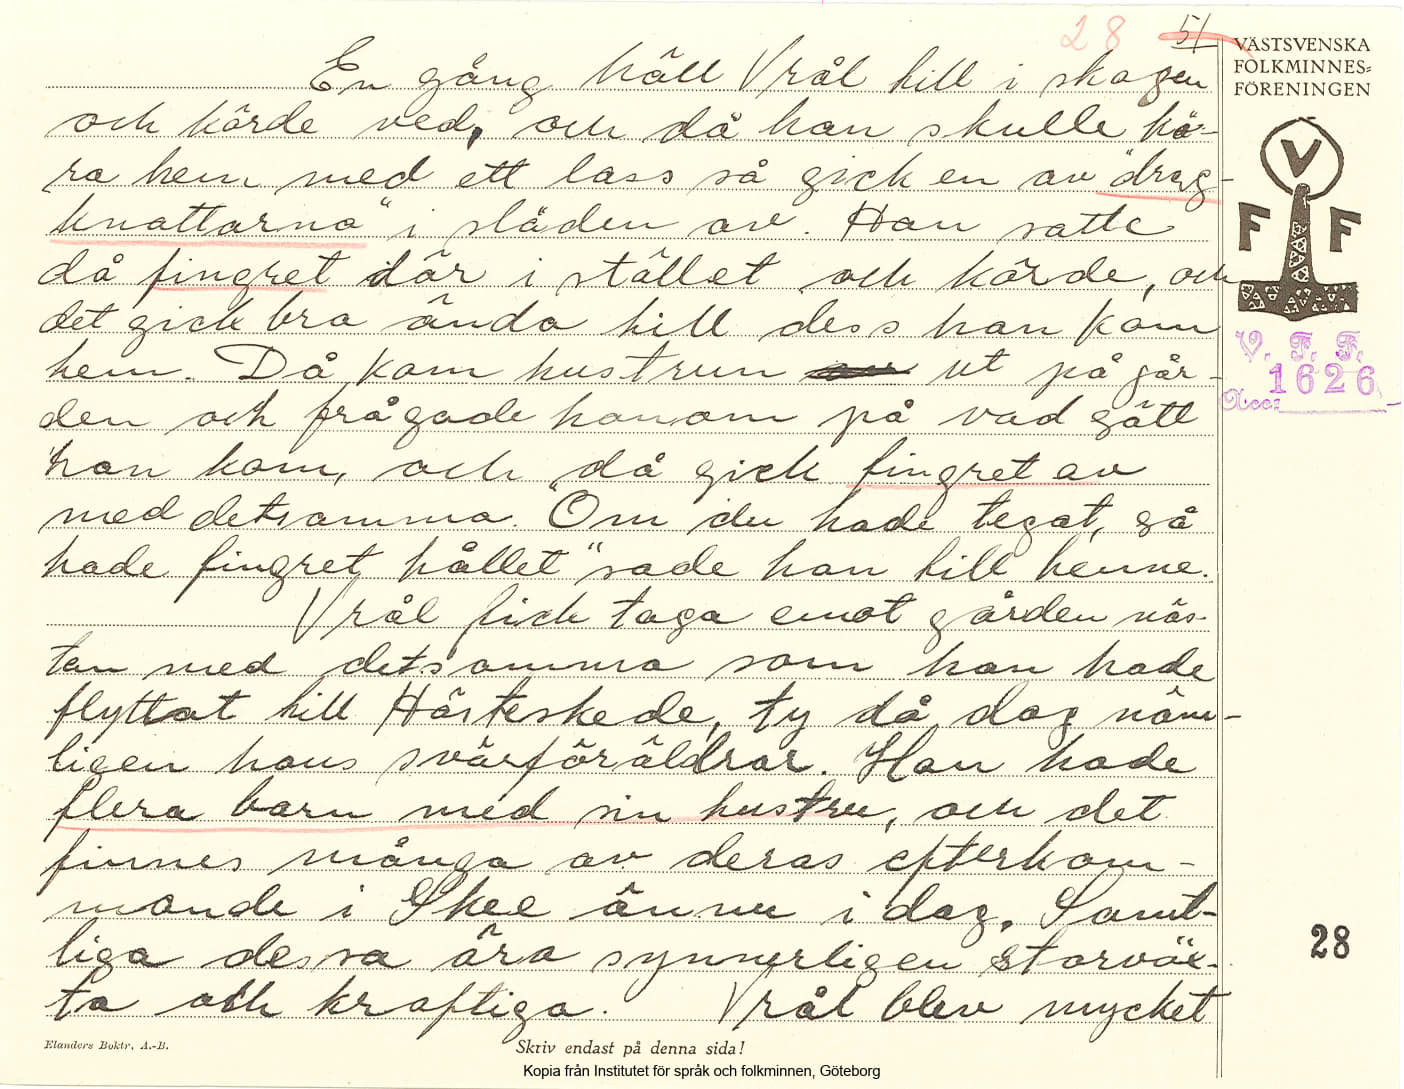 28 51
VÄSTSVENSKA
FOLKMINNES=
FÖRENINGEN
V
F F
V. F. F.
1626
Acc:
En gång höll Vrål till i skogen
och körde ved, och då han skulle kö-
ra hem med ett lass så gick en av "drag-
knattarna" i släden av. Han satte
då fingret där i stället och körde, och
det gick bra ända till dess han kom
hem. Då kom hustrun ut på går-
den och frågade honom på vad sätt
han kom, och då gick fingret av
med detsamma. "Om du hade tegat, så
hade fingret hållet" sade han till henne.
Vrål fick taga emot gården näs-
tan med detsamma som han hade
flyttat till Hörteskede, ty då dog näm-
ligen hans svärföräldrar. Han hade
flera barn med sin hustru, och det
finnes många av deras efterkom-
mande i Skee ännu i dag. Samt-
liga dessa äro synnerligen storväx-
ta och kraftiga. Vrål blev mycket
28
Elanders Boktr. A.-B.
Skriv endast på denna sida!
Kopia från Institutet för språk och folkminnen, Göteborg